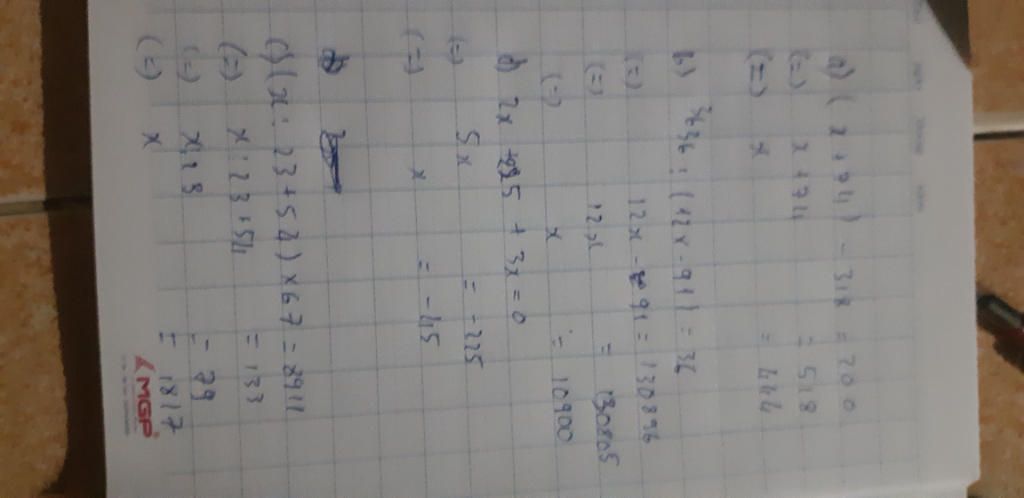 a) (x + 74) - 318 = 200
(=) x + 74 = 518
(=) x = 444
b) 3636 : (12x - 91) = 36
(=) 12x - 91 = 130896
(=) 12x = 130805
(=) x = 10900
d) 2x + 225 + 3x = 0
(=) 5x = - 225
(=) x = - 45
c) (x : 23 + 54) x 67 = 8911
(=) x : 23 + 54 = 133
(=) x : 23 = 79
(=) x = 1817
MGP